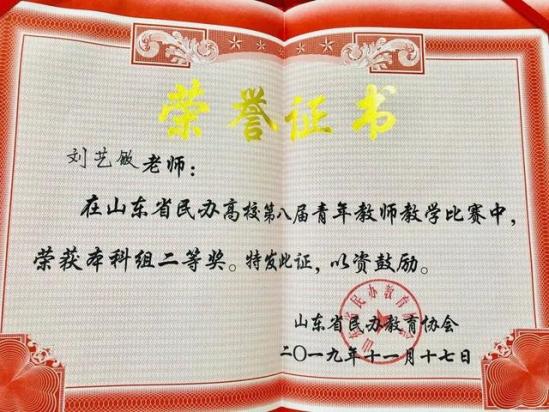 荣誉证书
刘艺敏老师：
在山东省民办高校第八届青年教师教学比赛中，
荣获本科组二等奖。特发此证，以资鼓励。
山东省民办教育协会
二〇一九年十一月十七日
山东省民办教育协会